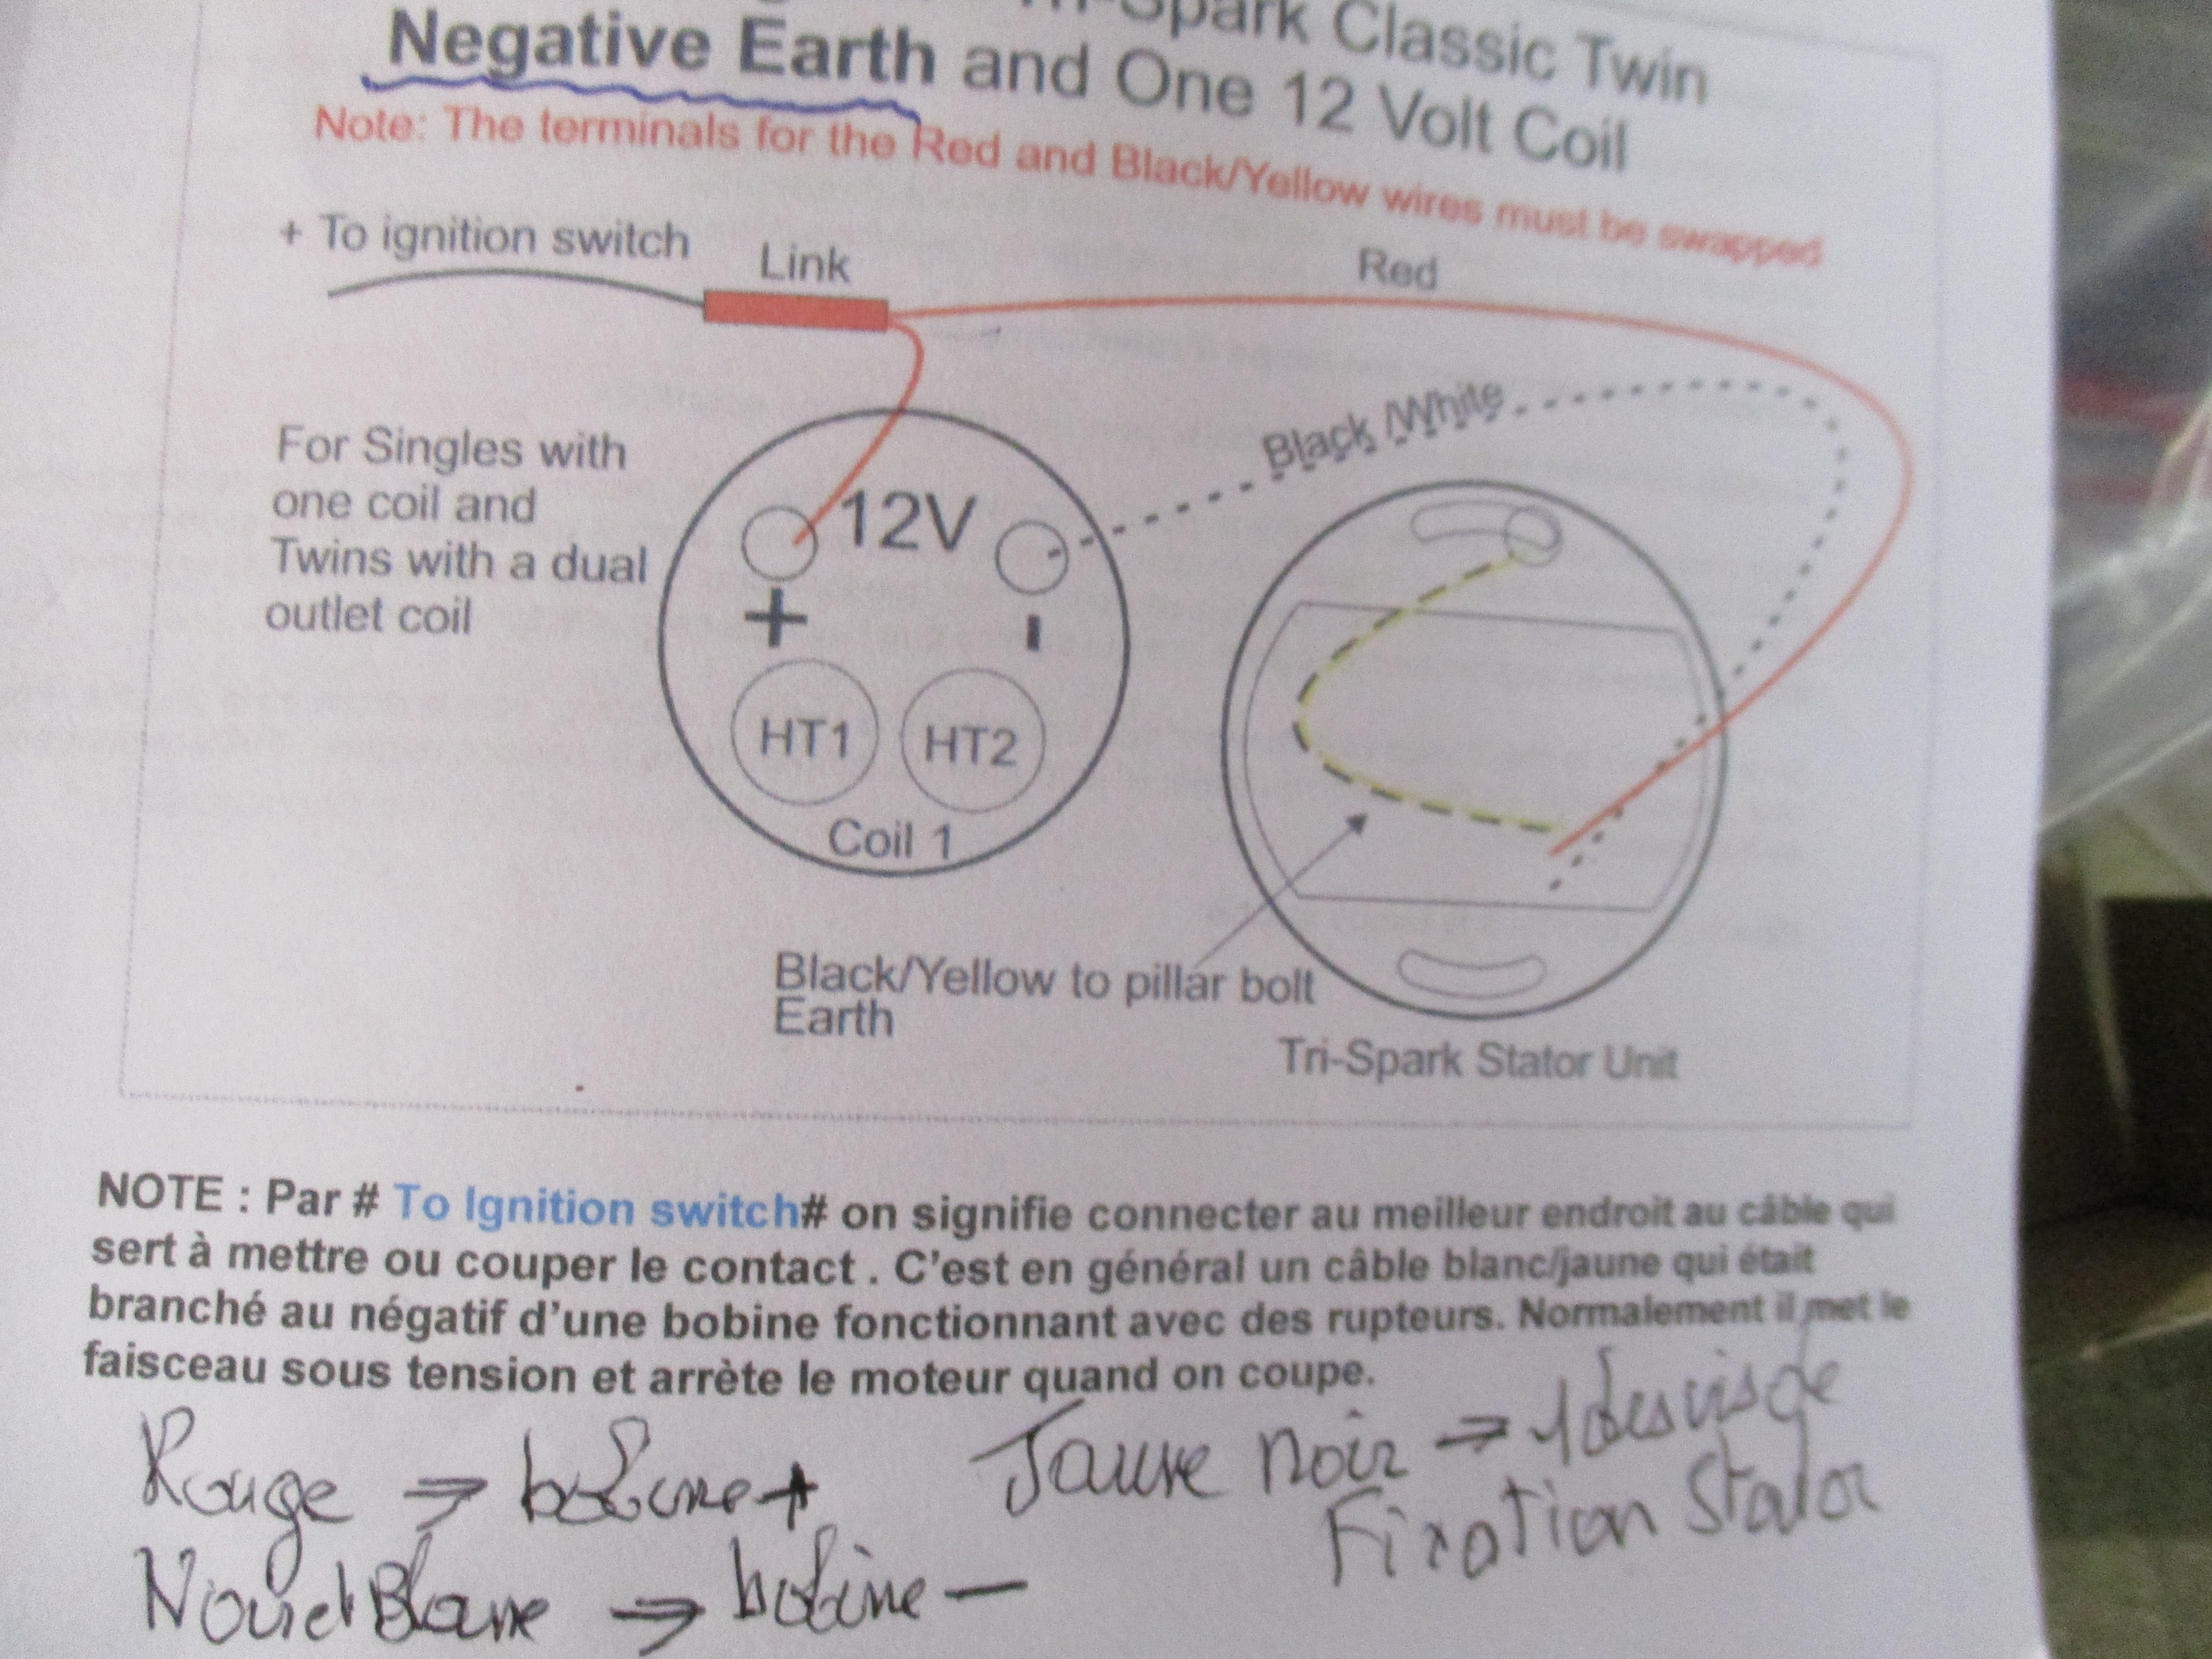 Spark Classic Twin
Negative Earth and One 12 Volt Coil
Note: The terminals for the Red and Black/Yellow wires must be swapped
+ To ignition switch
Link
Red
Black/White
For Singles with
one coil and
Twins with a dual
outlet coil
12V
+
-
HT1
HT2
Coil 1
Black/Yellow to pillar bolt
Earth
Tri-Spark Stator Unit
NOTE : Par # To Ignition switch# on signifie connecter au meilleur endroit au câble qui
sert à mettre ou couper le contact . C'est en général un câble blanc/jaune qui était
branché au négatif d'une bobine fonctionnant avec des rupteurs. Normalement il met le
faisceau sous tension et arrète le moteur quand on coupe.
Rouge ⇒ bobine +
Jaune noir ⇒ 1 des vis de
Fixation Stator
Noir et Blanc ⇒ bobine -